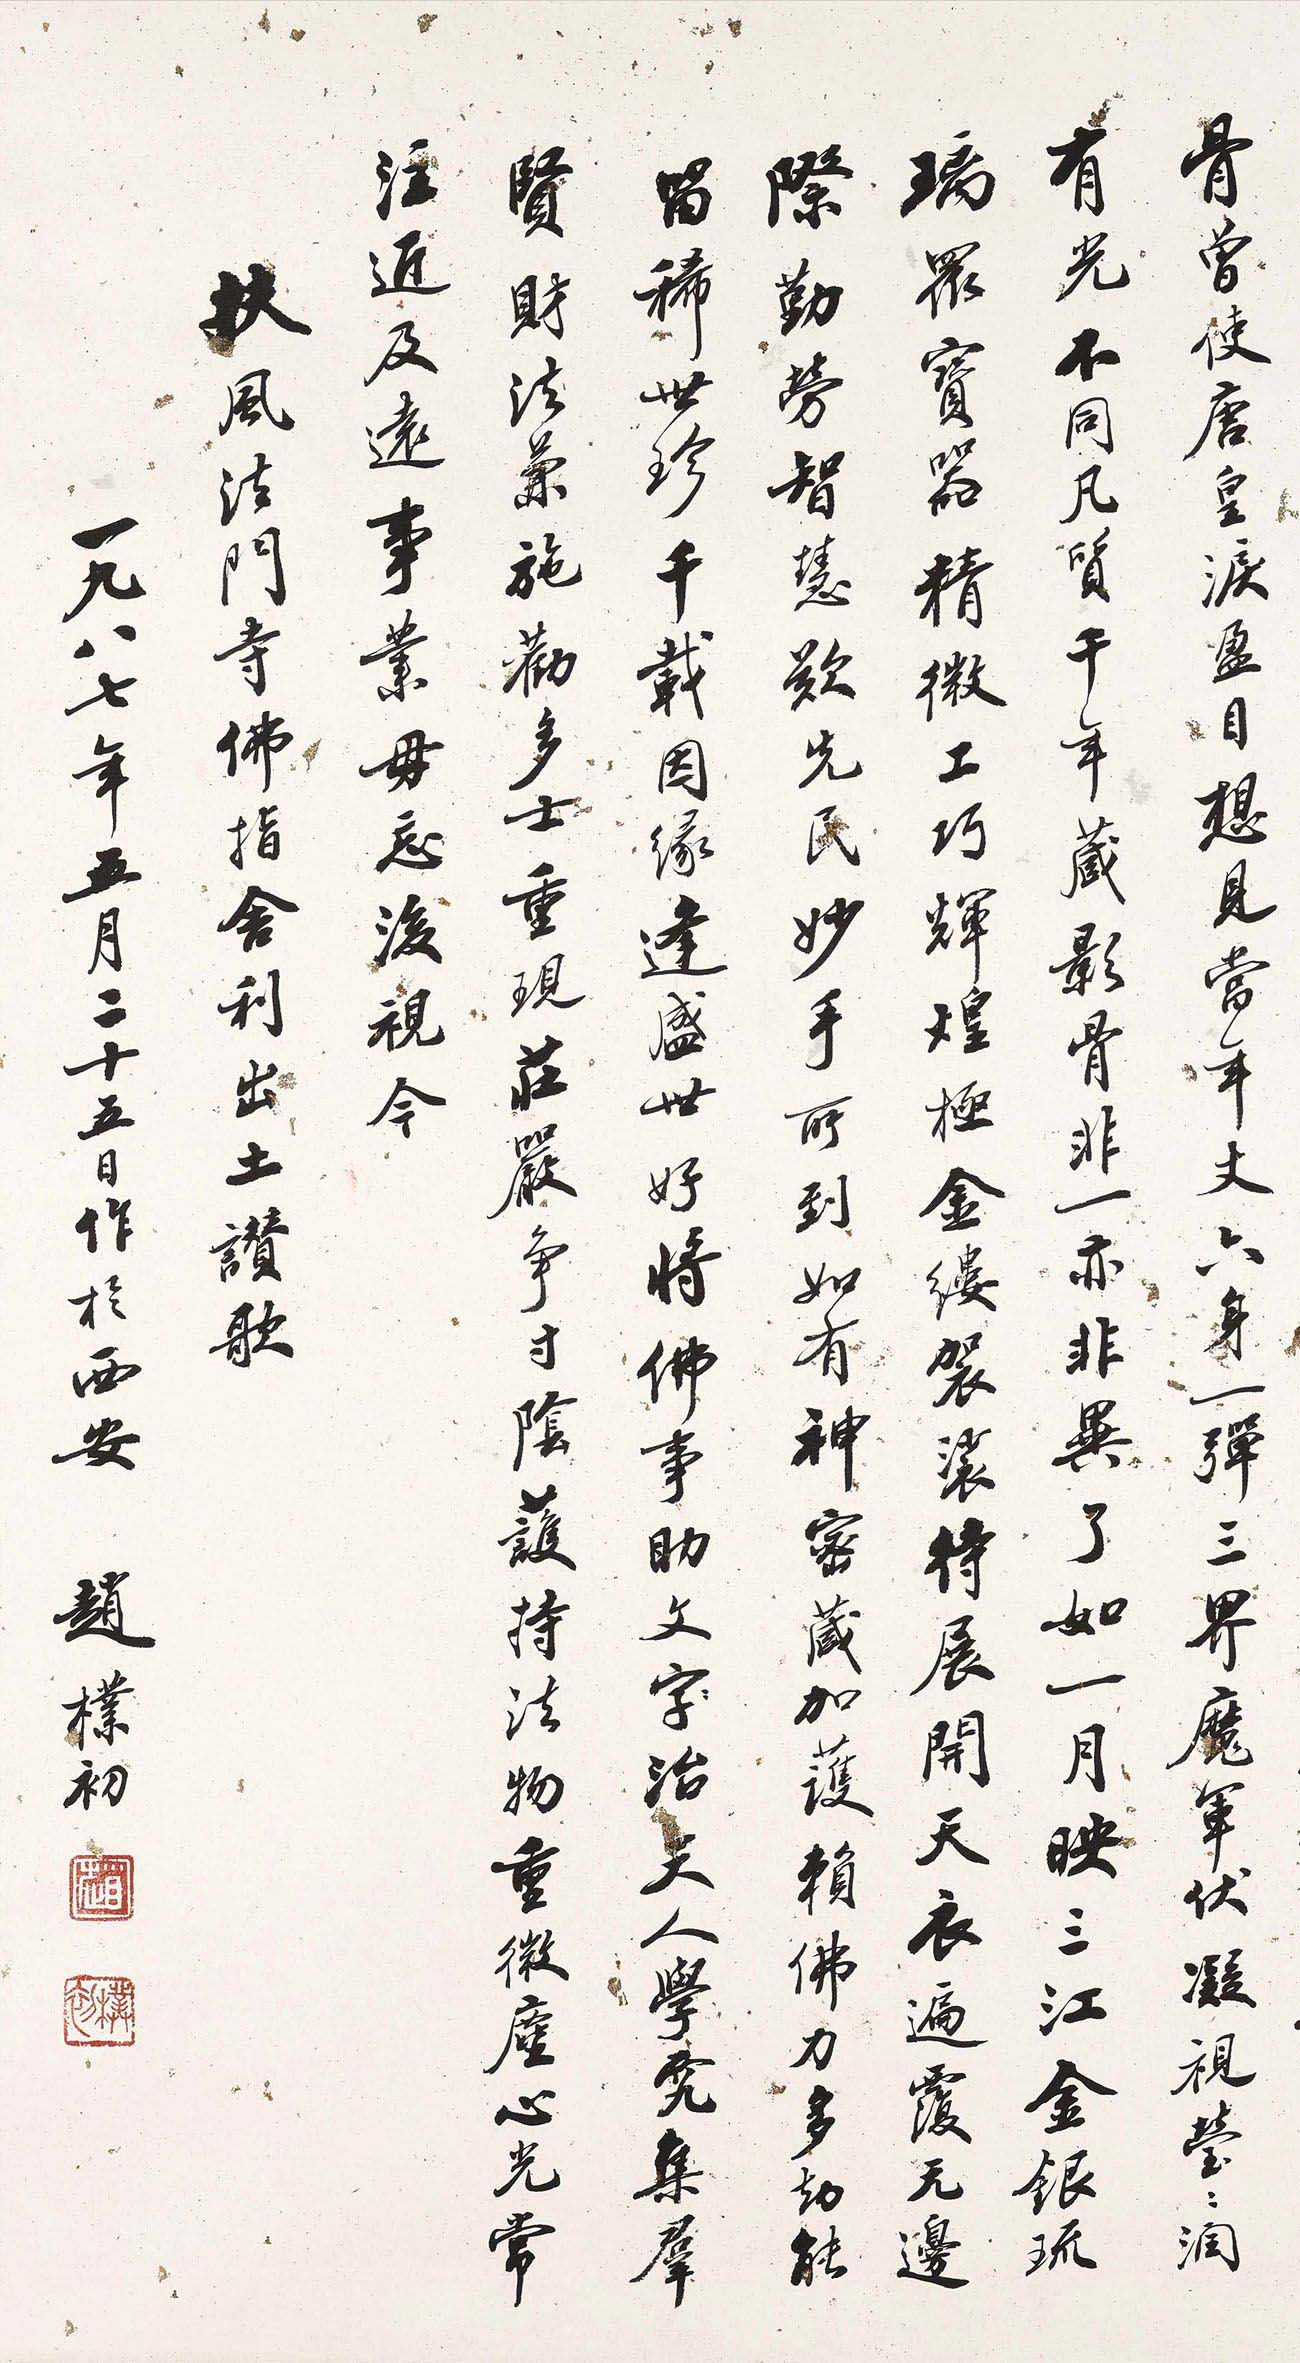 骨曾使唐皇淚盈目想見當年丈六身一彈三界魔軍伏凝視瑩〻潤
有光不同凡質千年藏影骨非一亦非異了如一月映三江金銀琉
璃眾寶器精微工巧輝煌極金縷袈裟特展開天衣遍覆无邊
際勤勞智慧歎先民妙手所到如有神密藏加護賴佛力多劫能
留稀世珍千載因緣逢盛世好將佛事助文字治天人學究集群
賢財法兼施勸多士重現莊嚴爭寸陰護持法物重微塵心光常
注近及遠事業毋忘後視今
扶風法門寺佛指舍利出土讚歌
一九八七年五月二十五日作於西安 趙樸初
趙
樸初